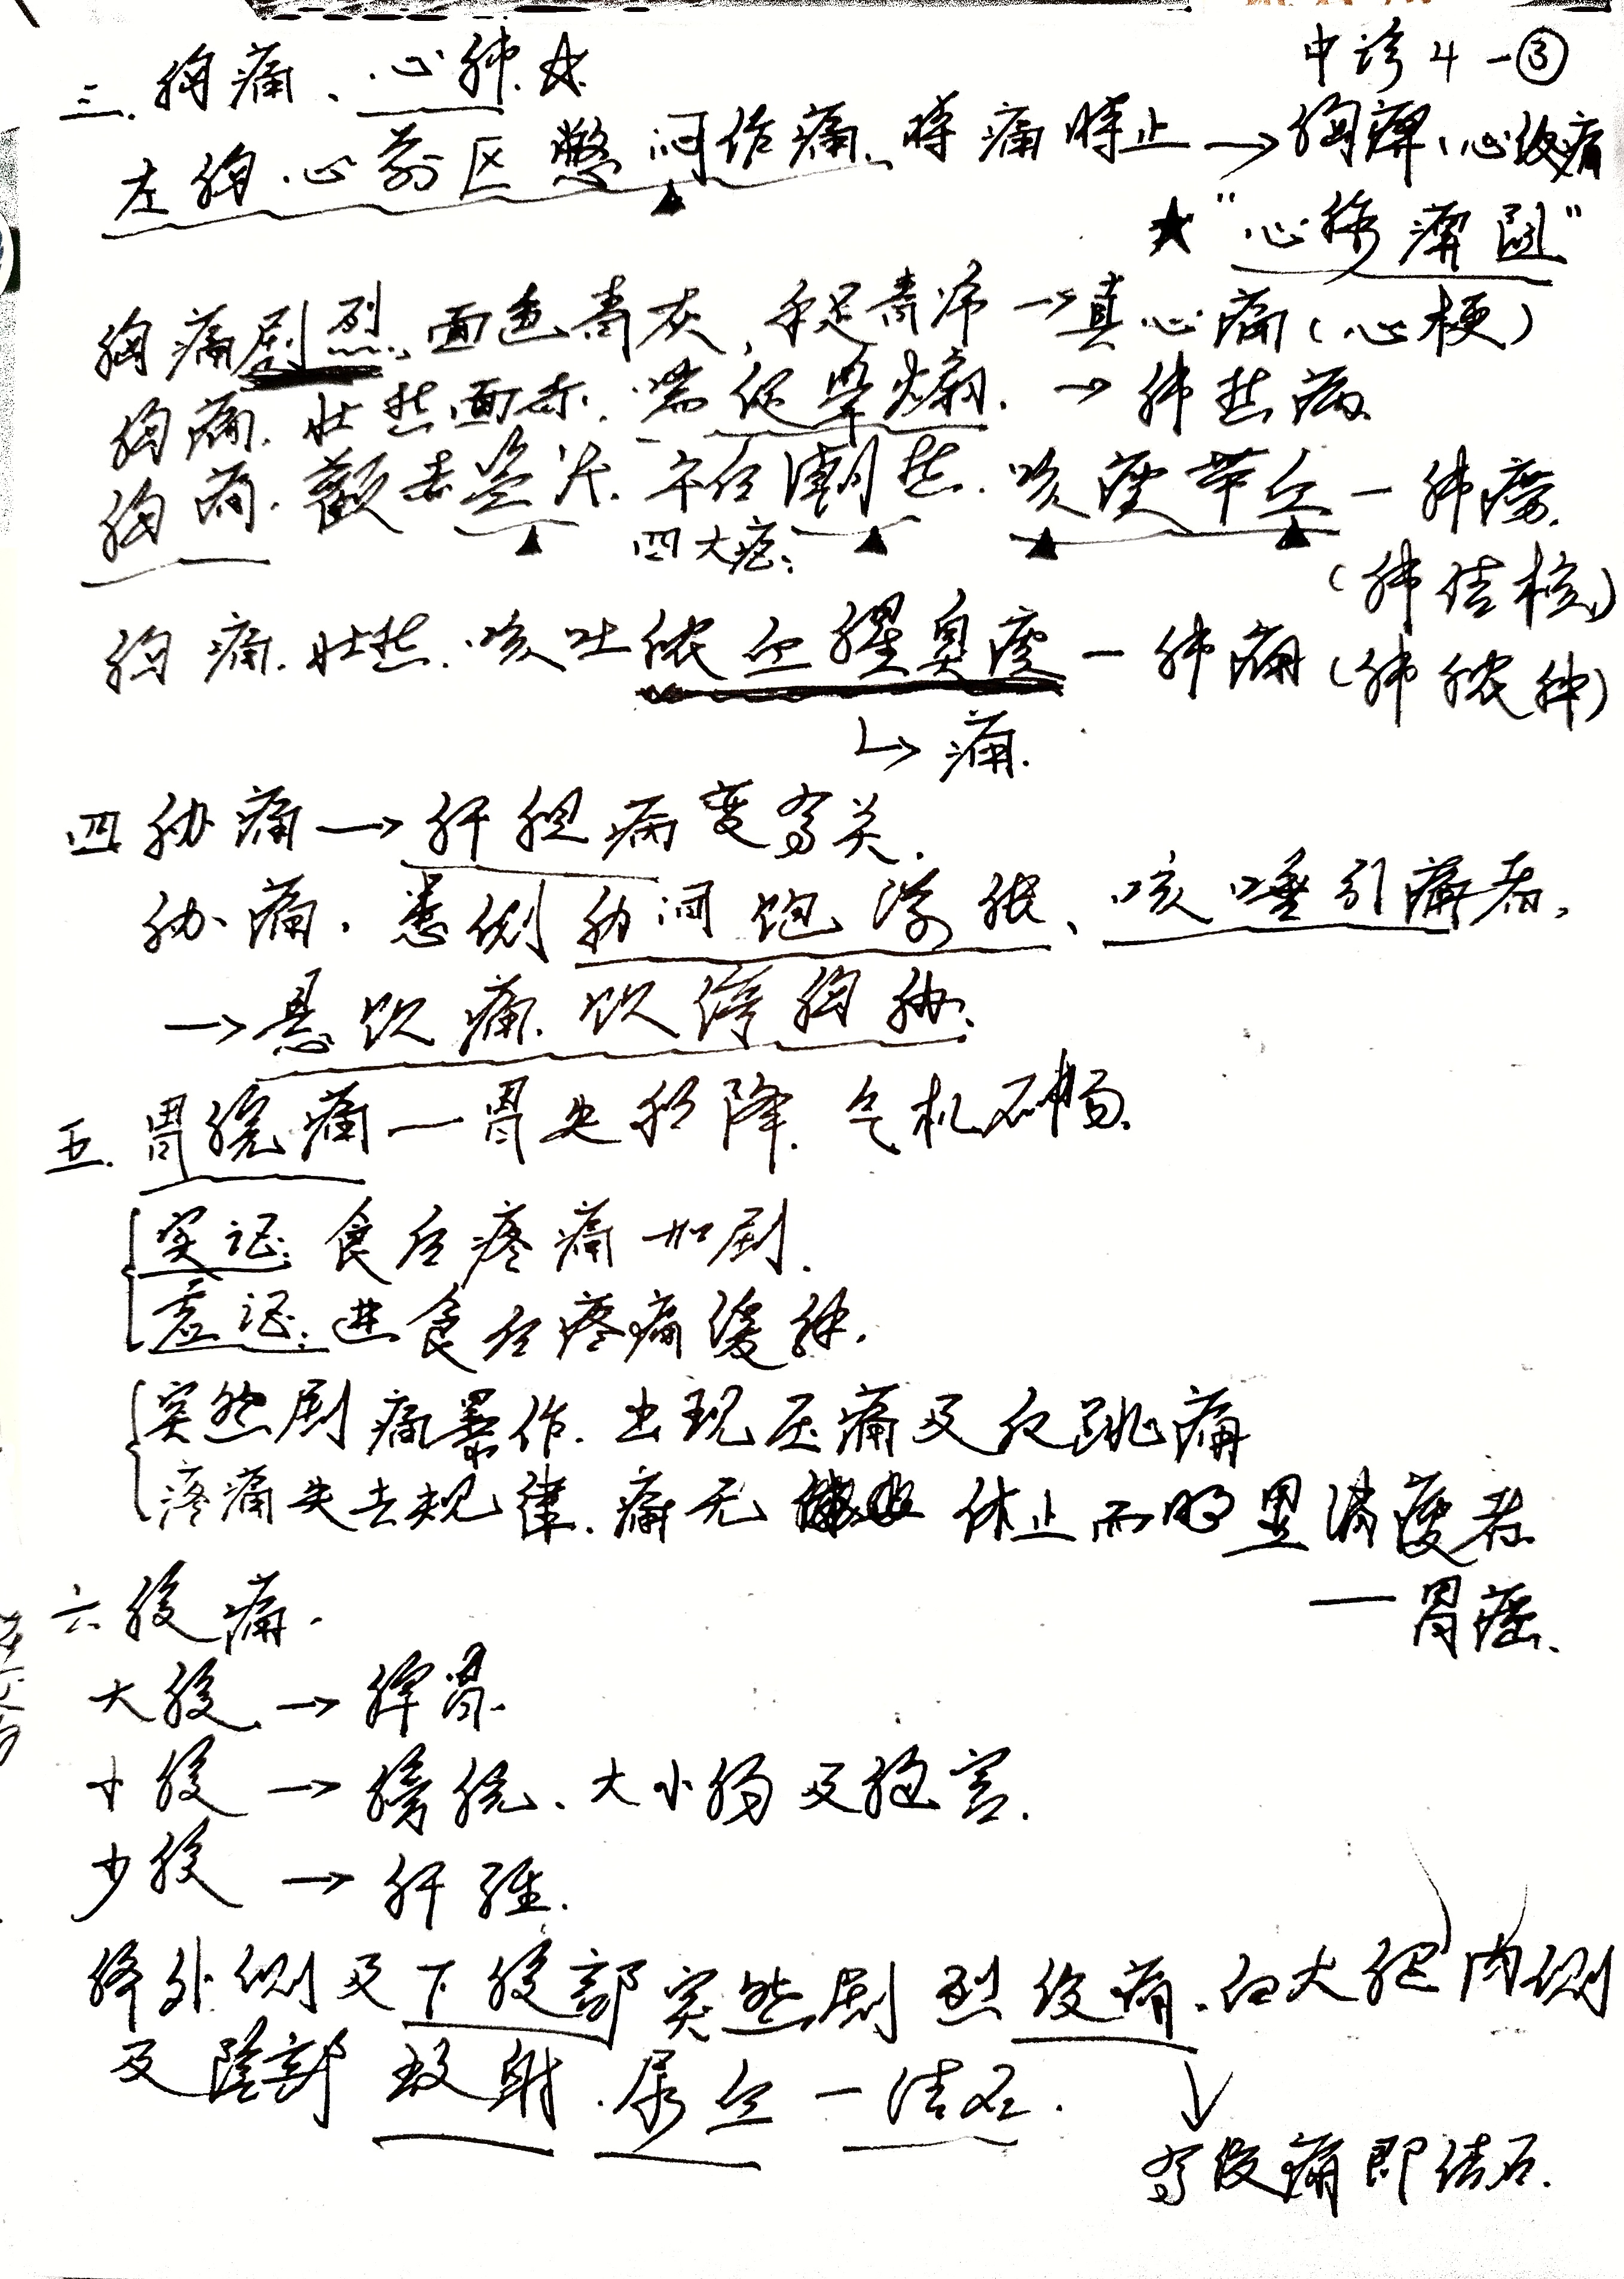 中诊4-③
三.胸痛、心肺.☆
左胸.心前区憋闷作痛、時痛時止→胸痹、心绞痛
★“心脉痹阻”
胸痛剧烈.面色青灰,手足青冷→真心痛(心梗)
胸痛.壮热面赤.喘促鼻煽.→肺热病.
胸痛.颧赤盗汗.午后潮热.咳痰带血—肺痨.
四大症:
(肺结核)
胸痛.壮热.咳吐脓血腥臭痰—肺痈(肺脓肿)
↳痈.
四 胁痛→肝胆病变有关.
胁痛.患侧肋间饱满胀、咳唾引痛者,
→悬饮痛.饮停胸胁.
五.胃脘痛—胃失和降.气机不畅.
实证:食后疼痛加剧.
虚证:进食后疼痛缓解.
突然剧痛暴作.出现压痛及反跳痛
疼痛失去规律.痛无休止而明显消瘦者.
—胃癌.
六.腹痛.
大腹→脾胃.
小腹→膀胱、大小肠及胞宫.
少腹→肝经.
脐外侧及下腹部突然剧烈绞痛.向大腿内侧
及陰部放射.尿血—结石.
有绞痛即结石.